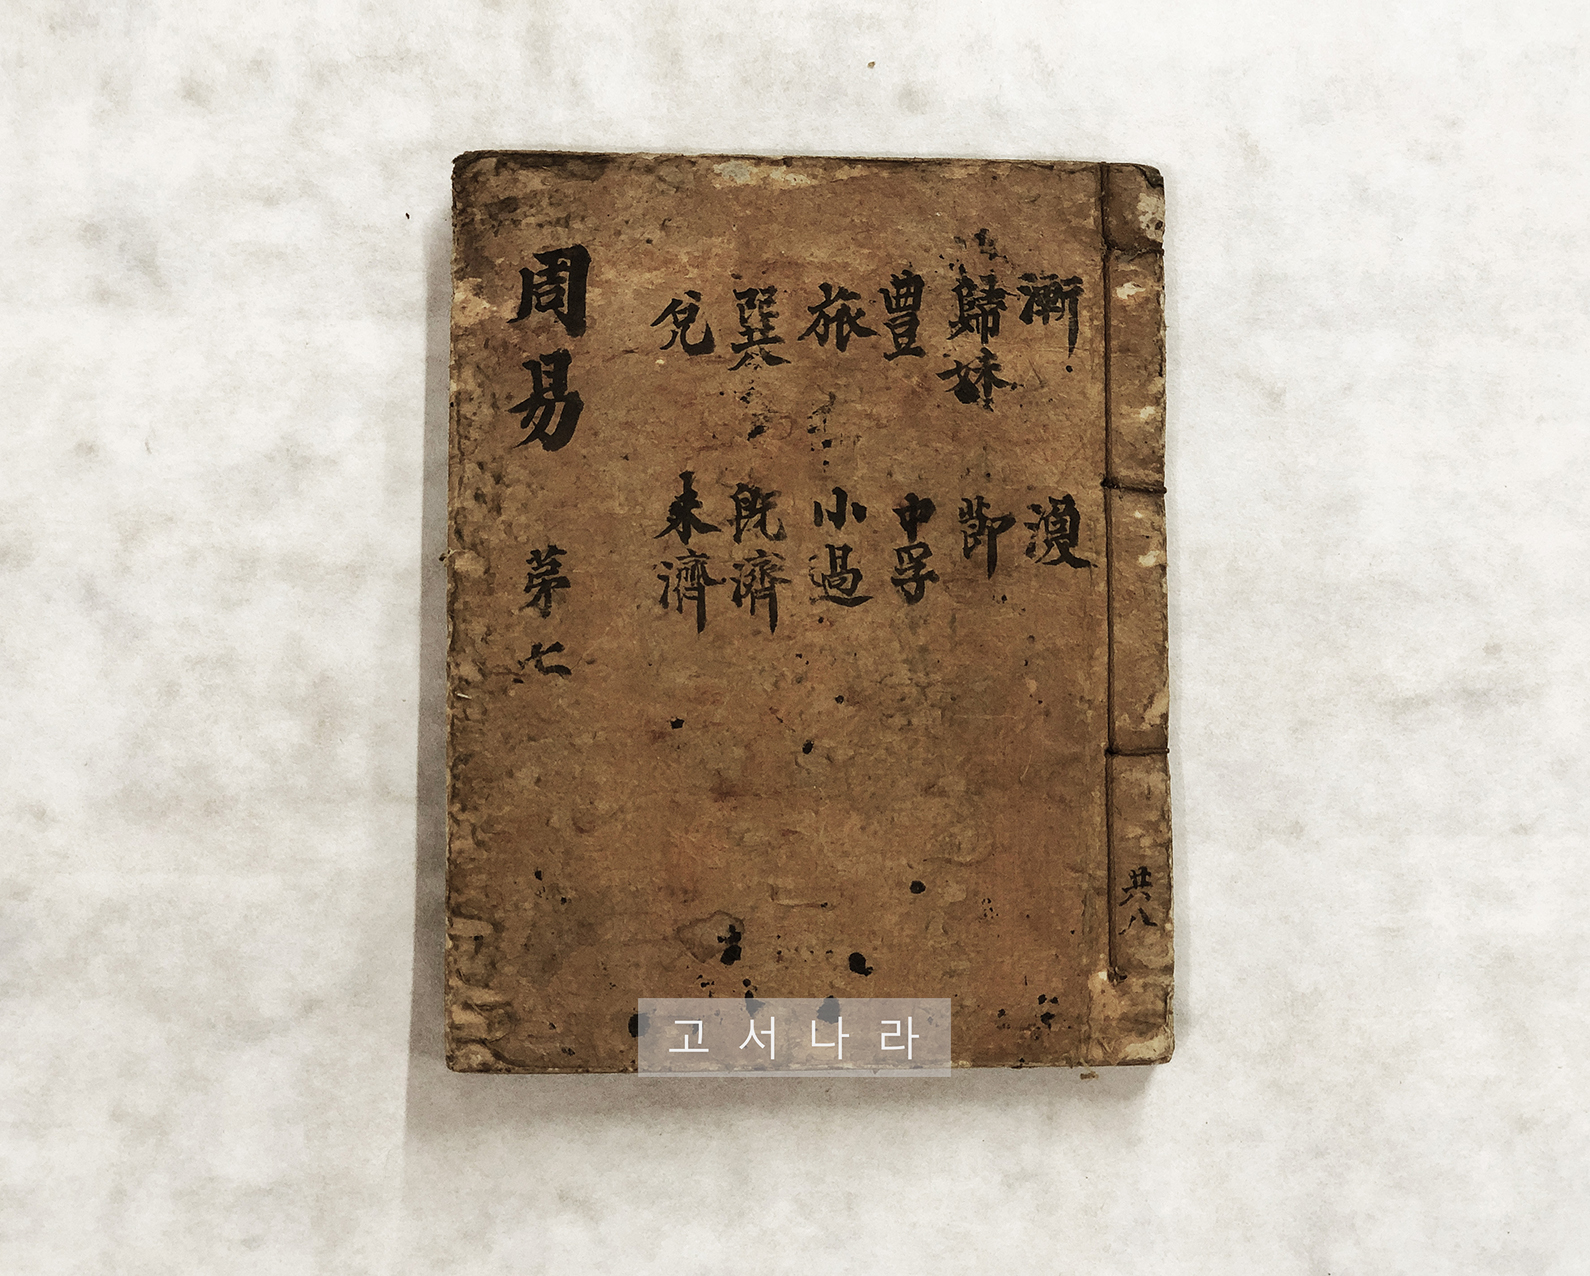 漸
歸妹
豊
旅
巽
兌
渙
節
中孚
小過
旣濟
未濟
周易 苐七
共八
고서나라